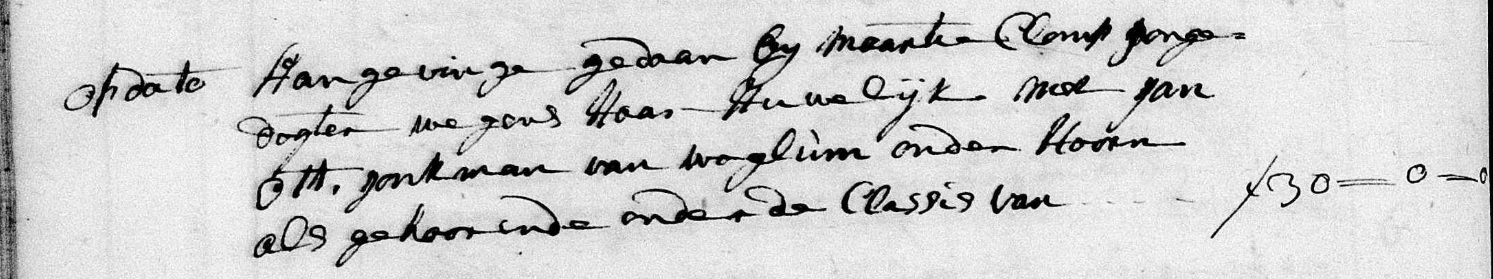 op dato Aangevinge gedaan by maartie Clomp jonge=
dogter wegens Haar Huwelijk met jan
Ott. jonkman van woglum onder Hoorn
als gehoorende onder de Classis van ƒ30=0=0